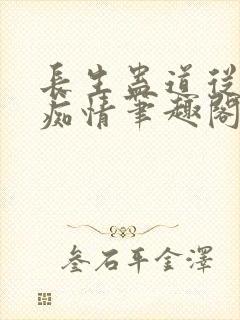 長生蠱道從
痴情筆趣閣
叁石平金澤